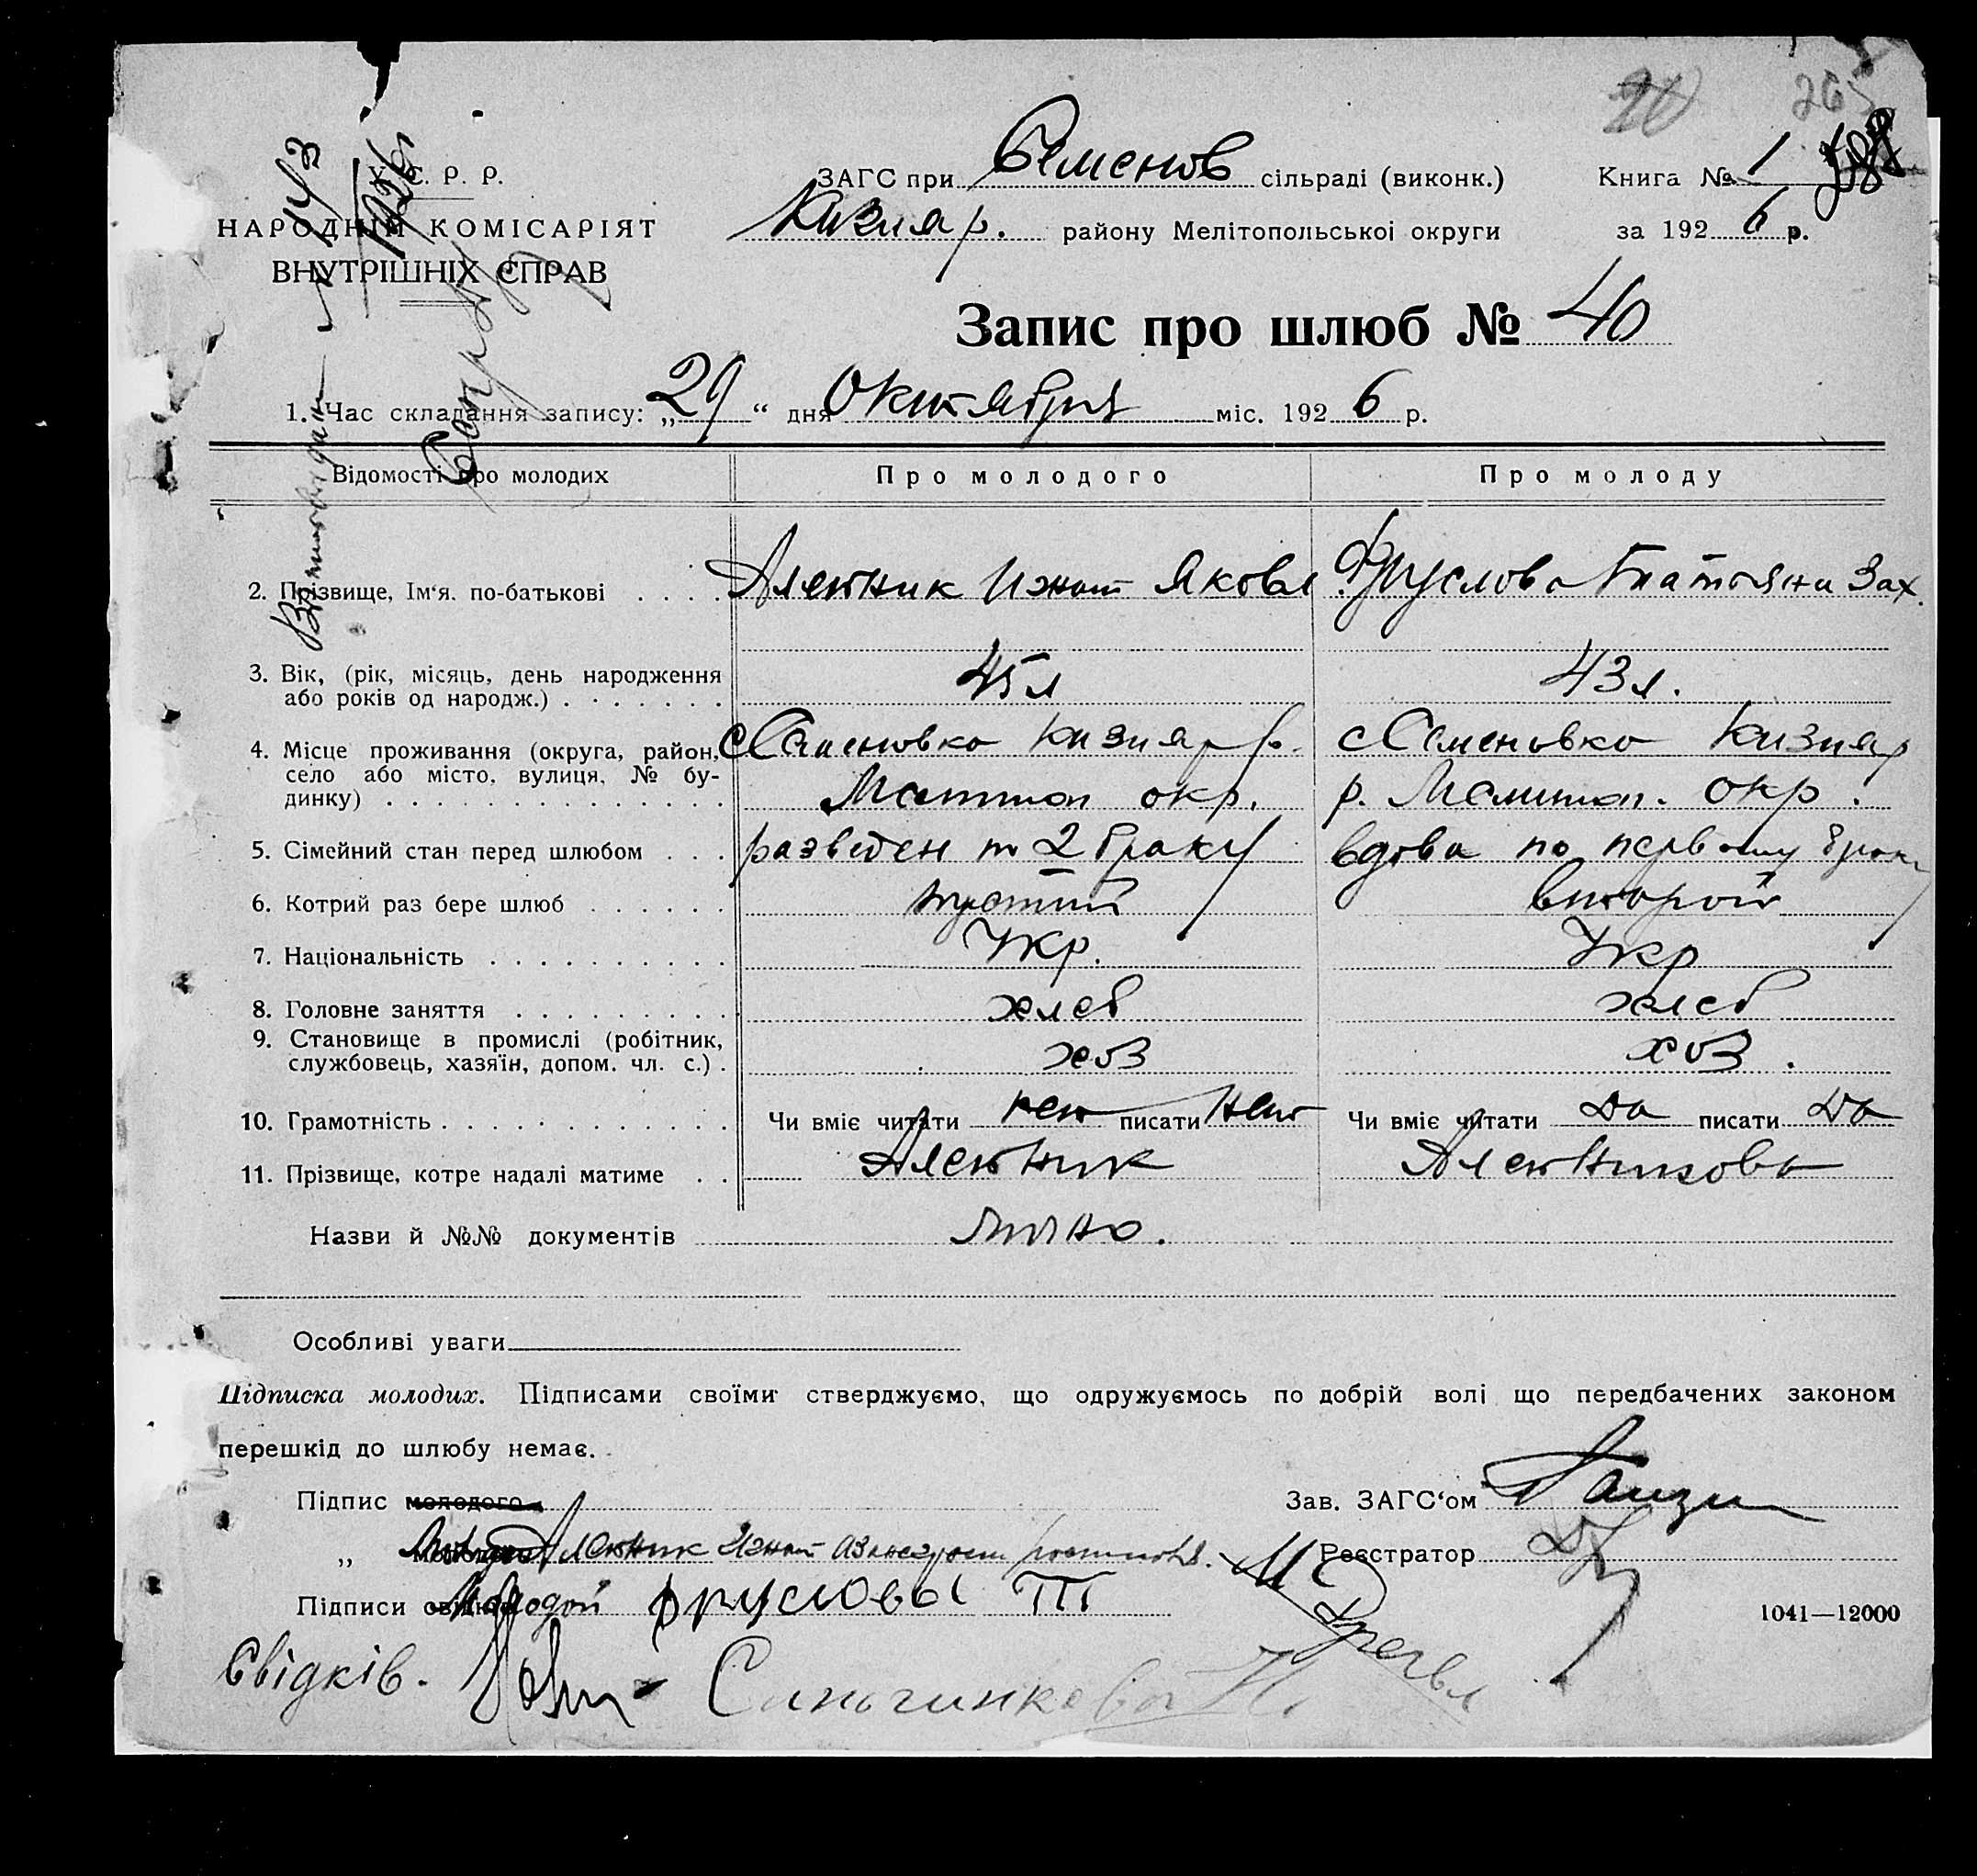 У. С. Р. Р.
НАРОДНІЙ КОМІСАРІЯТ
ВНУТРІШНІХ СПРАВ
ЗАГС при Семенов сільраді (виконк.)
Кизияр. району Мелітопольської округи
Книга № 1
за 1926 р.
Запис про шлюб № 40
1. Час складання запису: „29“ дня Октября міс. 1926 р.
Відомості про молодих Про молодого Про молоду
2. Прізвище, Ім‘я. по-батькові Алейник Игнат Яковл Фруслова Татьяна Зах.
3. Вік, (рік, місяць, день народження
або років од народж.) 45 л 43 л.
4. Місце проживання (округа, район, с Семеновка Кизияр р. с Семеновка Кизияр
село або місто, вулиця, № бу-
динку) Мелитоп окр. р. Мелитоп. окр.
5. Сімейний стан перед шлюбом разведен по 2 браку вдова по первому браку
6. Котрий раз бере шлюб третий второй
7. Національність Укр. Укр
8. Головне заняття хлеб хлеб
9. Становище в промислі (робітник,
службовець, хазяїн, допом. чл. с.) хоз хоз.
10. Грамотність Чи вміє читати нет писати нет Чи вміє читати да писати да
11. Прізвище, котре надалі матиме Алейник Алейникова
Назви й №№ документів лично.
Особливі уваги
Підписка молодих. Підписами своїми стверджуємо, що одружуємось по добрій волі що передбачених законом
перешкід до шлюбу немає.
Підпис молодого
Зав. ЗАГС‘ом
„ Алейник Игнат
Реєстратор
Підписи Молодой Фруслова Т
1041—12000
Свідків.